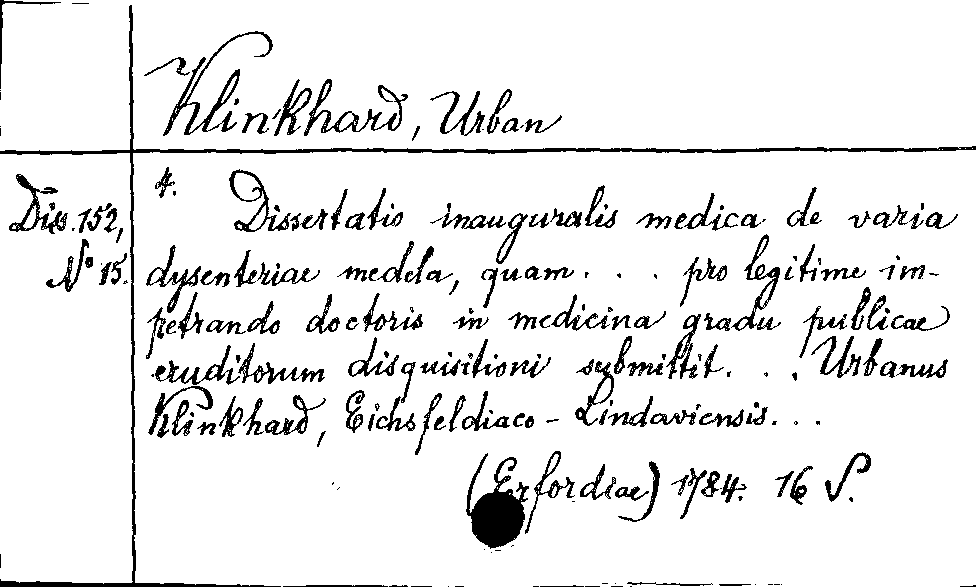 Klinkhard, Urban
Diss. 152,
No 15.
4. Dissertatio inauguralis medica de varia
dysenteriae medela, quam . . . pro legitime im-
petrando doctoris in medicina gradu publicae
eruditorum disquisitioni submittit. . . Urbanus
Klinkhard, Eichsfeldiaco-Lindaviensis...
(Erfordiae) 1784. 16 S.